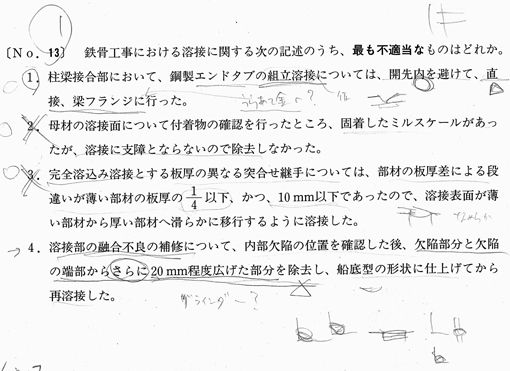 〔No. 13〕 鉄骨工事における溶接に関する次の記述のうち、最も不適当なものはどれか。
1. 柱梁接合部において、鋼製エンドタブの組立溶接については、開先内を避けて、直
接、梁フランジに行った。
2. 母材の溶接面について付着物の確認を行ったところ、固着したミルスケールがあっ
たが、溶接に支障とならないので除去しなかった。
3. 完全溶込み溶接とする板厚の異なる突合せ継手については、部材の板厚差による段
違いが薄い部材の板厚の 1/4 以下、かつ、10 mm以下であったので、溶接表面が薄
い部材から厚い部材へ滑らかに移行するように溶接した。
→ 4. 溶接部の融合不良の補修について、内部欠陥の位置を確認した後、欠陥部分と欠陥
の端部からさらに20 mm程度広げた部分を除去し、船底型の形状に仕上げてから
再溶接した。